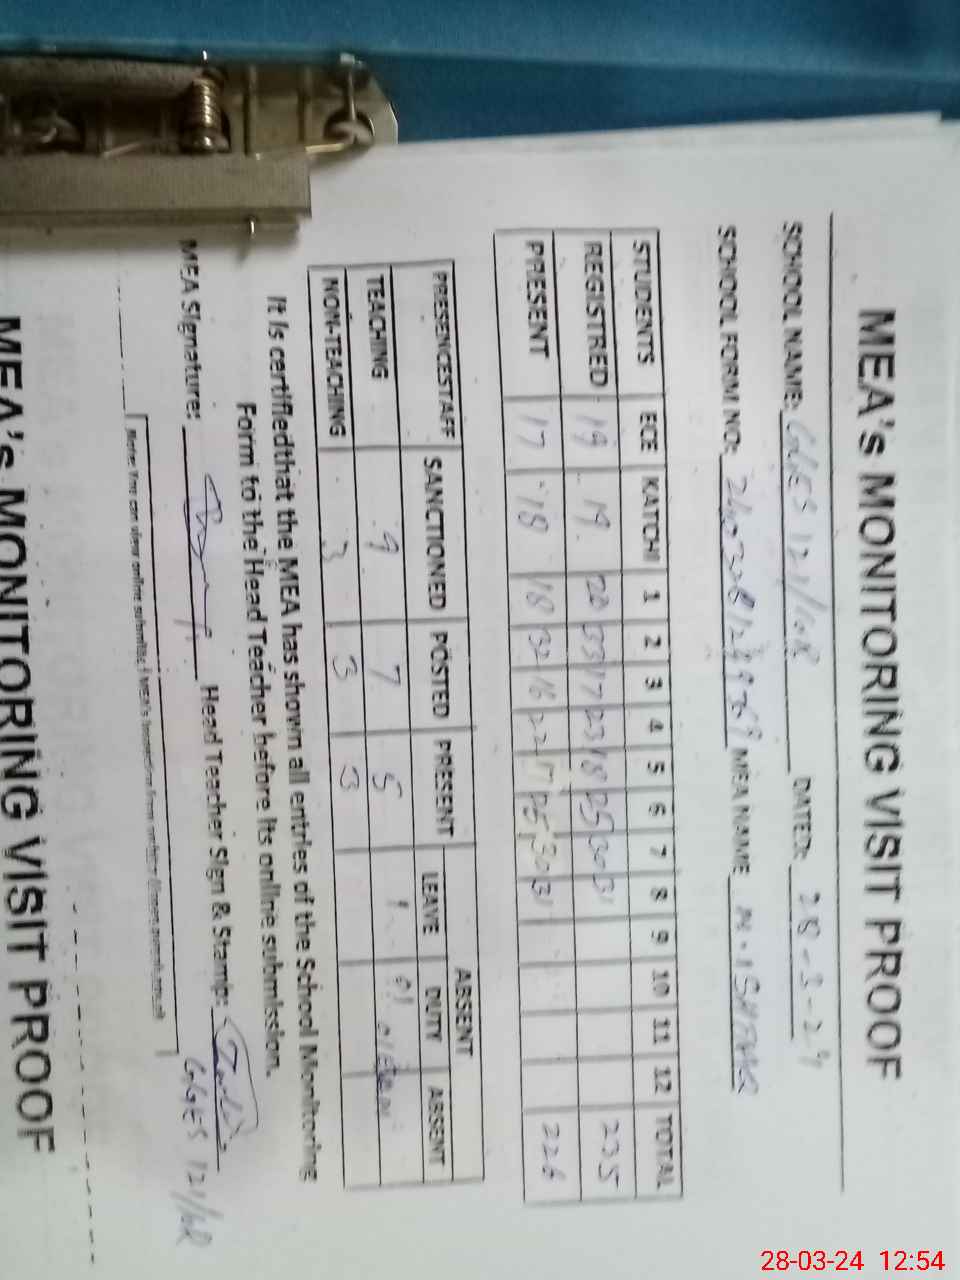 MEA's MONITORING VISIT PROOF
SCHOOL NAME: GGES 121/16R DATED: 28-3-24
SCHOOL FORM NO: MEA NAME M. ISHTIAQ
STUDENTS ECE KATCHI 1 2 3 4 5 6 7 8 9 10 11 12 TOTAL
REGISTRED 19 19 20 33 17 23 18 25 30 31 235
PRESENT 17 18 18 32 16 22 17 25 30 31 226
ABSENT
PRESENCESTAFF SANCTIONED POSTED PRESENT LEAVE DUTY ABSENT
TEACHING 9 7 5 1 01
NON-TEACHING 3 3 3
It is certifiedthat the MEA has shown all entries of the School Monitoring
Form to the Head Teacher before its online submission.
MEA Signature: Head Teacher Sign & Stamp:
GGES 121/6R
Note: You can view online submitted MEA's
MEA's MONITORING VISIT PROOF
28-03-24 12:54